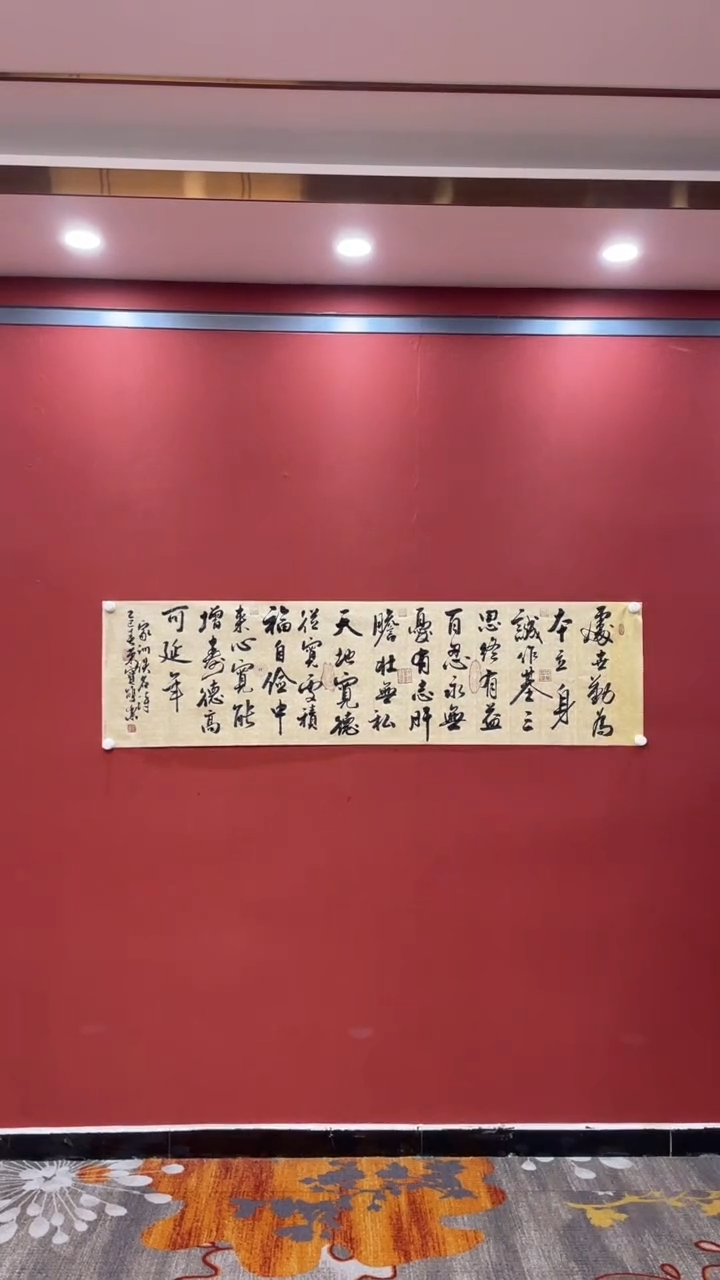 處世勤為
本立身
誠作基三
思終有益
百忍永無
憂有志肝
膽壯無私
天地寬德
從寬處積
福自儉中
來心寬能
增壽德高
可延年
家训佚名诗
乙巳春